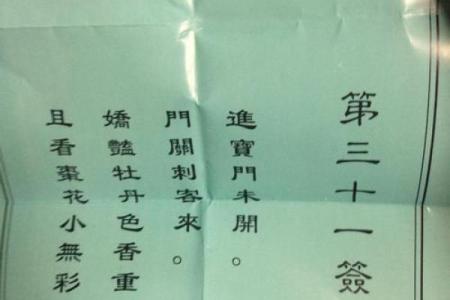 第三十一簽
進寶門未開。
門關刺客來。
嬌豔牡丹色香重
且看棗花小無彩